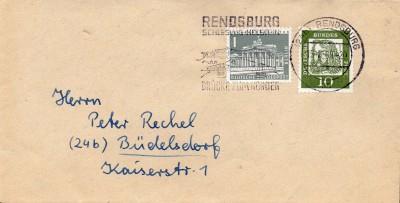 RENDSBURG
SCHLESWIG-HOLSTEIN
BRÜCKE ZUM NORDEN
RENDSBURG
1
DEUTSCHE BUNDESPOST
10
Herrn
Peter Rechel
(24b) Büdelsdorf
Kaiserstr 1